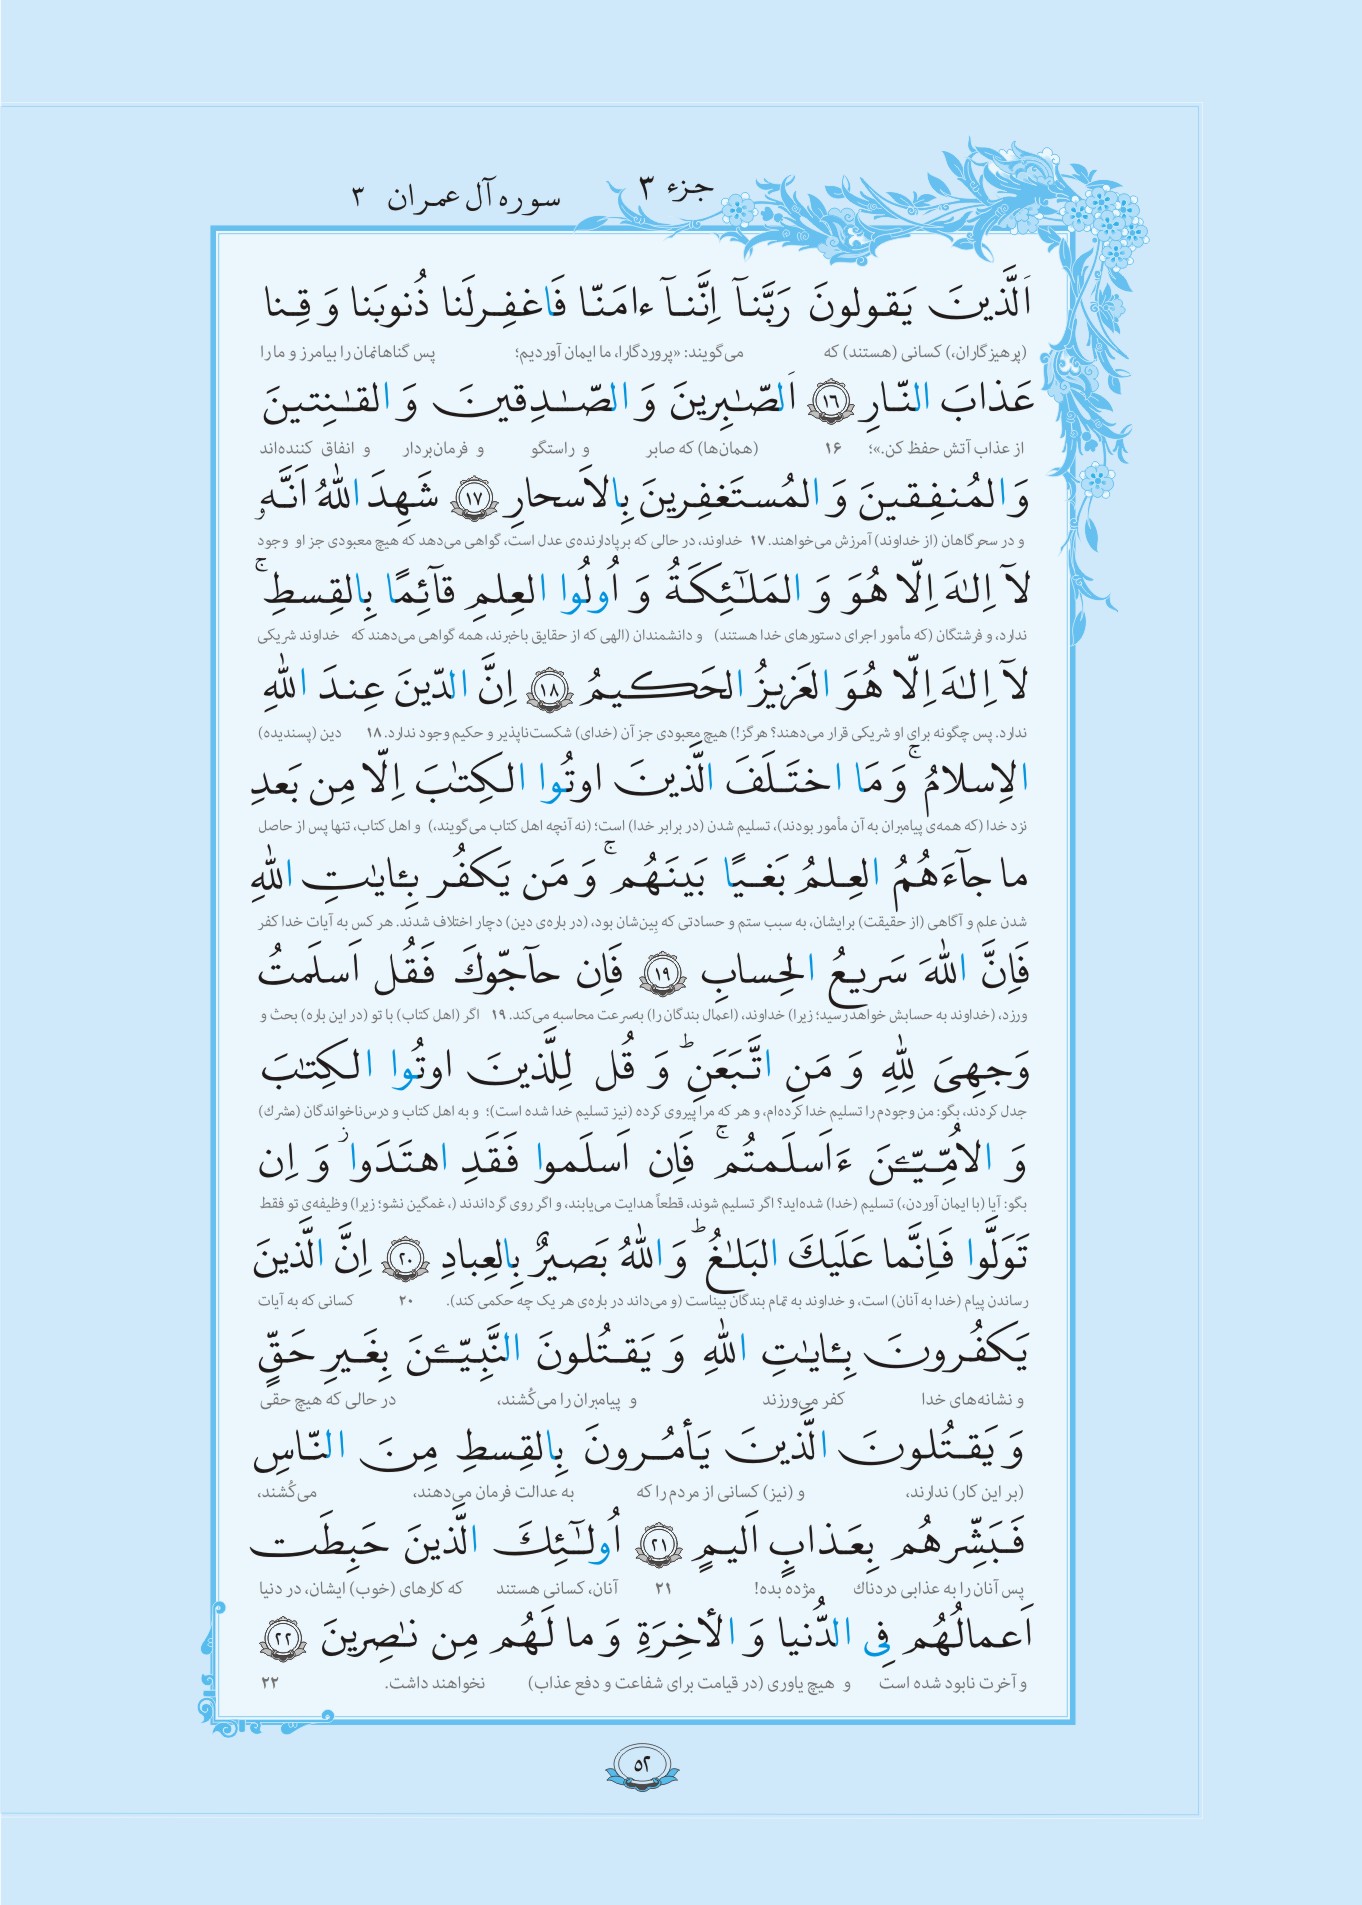 جزء ۳
سوره آل عمران ۳
اَلَّذينَ يَقولونَ رَبَّنآ اِنَّنآ ءامَنّا فَاغفِرلَنا ذُنوبَنا وَ قِنا
(پرهیزگاران،) کسانی (هستند) که می‌گویند: «پروردگارا، ما ایمان آوردیم؛ پس گناهانمان را بیامرز و ما را
عَذابَ النّارِ ﴿۱۶﴾ اَلصّٰبِرينَ وَ الصّٰدِقينَ وَ القٰنِتينَ
از عذاب آتش حفظ کن.»؛ ۱۶ (همان‌ها) که صابر و راستگو و فرمان‌بردار و انفاق کننده‌اند
وَ المُنفِقينَ وَ المُستَغفِرينَ بِالاَسحارِ ﴿۱۷﴾ شَهِدَ اللّٰهُ اَنَّهٗ
و در سحرگاهان (از خداوند) آمرزش می‌خواهند. ۱۷ خداوند، در حالی که برپادارنده‌ی عدل است، گواهی می‌دهد که هیچ معبودی جز او وجود
لآ اِلٰهَ اِلّا هُوَ وَ المَلٰٓئِكَةُ وَ اُولُوا العِلمِ قآئِمًا بِالقِسطِ ۚ
ندارد، و فرشتگان (که مأمور اجرای دستورهای خدا هستند) و دانشمندان (الهی که از حقایق باخبرند، همه گواهی می‌دهند که خداوند شریکی
لآ اِلٰهَ اِلّا هُوَ العَزيزُ الحَكيمُ ﴿۱۸﴾ اِنَّ الدّينَ عِندَ اللّٰهِ
ندارد. پس چگونه برای او شریکی قرار می‌دهند؟ هرگز!) هیچ معبودی جز آن (خدای) شکست‌ناپذیر و حکیم وجود ندارد. ۱۸ دین (پسندیده)
الاِسلامُ ۚ وَ مَا اختَلَفَ الَّذينَ اوتُوا الكِتٰبَ اِلّا مِن بَعدِ
نزد خدا (که همه‌ی پیامبران به آن مأمور بودند)، تسلیم شدن (در برابر خدا) است؛ (نه آنچه اهل کتاب می‌گویند،) و اهل کتاب، تنها پس از حاصل
ما جآءَهُمُ العِلمُ بَغيًا بَينَهُم ۚ وَ مَن يَكفُر بِـٔايٰتِ اللّٰهِ
شدن علم و آگاهی (از حقیقت) برایشان، به سبب ستم و حسادتی که بین‌شان بود، (در باره‌ی دین) دچار اختلاف شدند. هر کس به آیات خدا کفر
فَاِنَّ اللّٰهَ سَريعُ الحِسابِ ﴿۱۹﴾ فَاِن حآجّوكَ فَقُل اَسلَمتُ
ورزد، (خداوند به حسابش خواهد رسید؛ زیرا) خداوند، (اعمال بندگان را) به‌سرعت محاسبه می‌کند. ۱۹ اگر (اهل کتاب) با تو (در این باره) بحث و
وَجهِیَ لِلّٰهِ وَ مَنِ اتَّبَعَنِ ؕ وَ قُل لِلَّذينَ اوتُوا الكِتٰبَ
جدل کردند، بگو: من وجودم را تسلیم خدا کرده‌ام، و هر که مرا پیروی کرده (نیز تسلیم خدا شده است)؛ و به اهل کتاب و درس‌ناخواندگان (مشرك)
وَ الاُمِّيّـٖنَ ءَاَسلَمتُم ۚ فَاِن اَسلَموا فَقَدِ اهتَدَوا ۖ وَ اِن
بگو: آیا (با ایمان آوردن،) تسلیم (خدا) شده‌اید؟ اگر تسلیم شوند، قطعاً هدایت می‌یابند، و اگر روی گرداندند (، غمگین نشو؛ زیرا) وظیفه‌ی تو فقط
تَوَلَّوا فَاِنَّما عَلَيكَ البَلٰغُ ؕ وَ اللّٰهُ بَصيرٌ بِالعِبادِ ﴿۲۰﴾ اِنَّ الَّذينَ
رساندن پیام (خدا به آنان) است، و خداوند به تمام بندگان بیناست (و می‌داند در باره‌ی هر یک چه حکمی کند). ۲۰ کسانی که به آیات
يَكفُرونَ بِـٔايٰتِ اللّٰهِ وَ يَقتُلونَ النَّبِيّـٖنَ بِغَيرِ حَقٍّ
و نشانه‌های خدا کفر می‌ورزند و پیامبران را می‌کُشند، در حالی که هیچ حقی
وَ يَقتُلونَ الَّذينَ يَأمُرونَ بِالقِسطِ مِنَ النّاسِ
(بر این کار) ندارند، و (نیز) کسانی از مردم را که به عدالت فرمان می‌دهند، می‌کُشند،
فَبَشِّرهُم بِعَذابٍ اَليمٍ ﴿۲۱﴾ اُولٰٓئِكَ الَّذينَ حَبِطَت
پس آنان را به عذابی دردناك مژده بده! ۲۱ آنان، کسانی هستند که کارهای (خوب) ایشان، در دنیا
اَعمالُهُم فِی الدُّنيا وَ الأخِرَةِ وَ ما لَهُم مِن نٰصِرينَ ﴿۲۲﴾
و آخرت نابود شده است و هیچ یاوری (در قیامت برای شفاعت و دفع عذاب) نخواهند داشت. ۲۲
۵۲